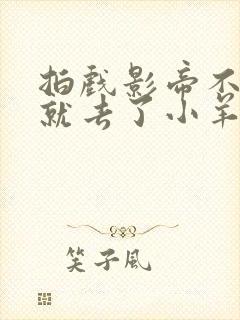 拍戏影帝不
就去了小羊
笑子风